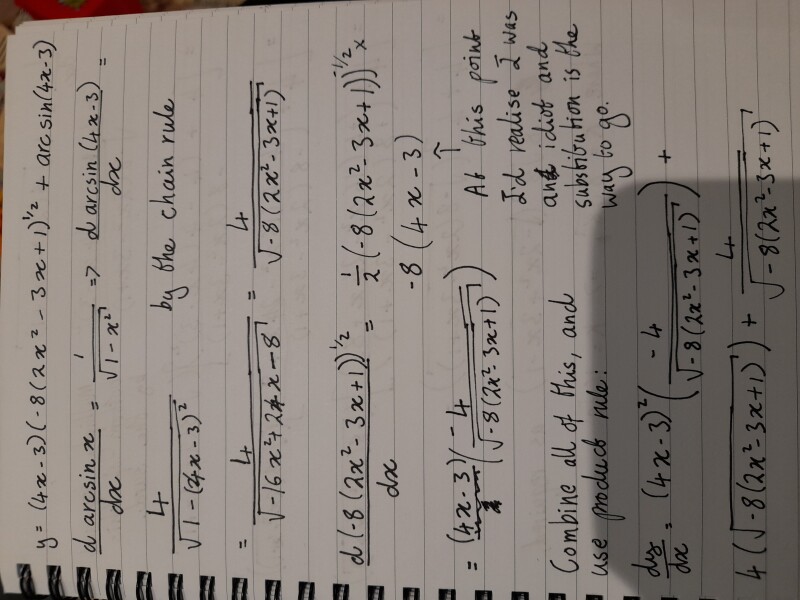 y = (4x-3)(-8(2x² - 3x+1)^1/2 + arcsin(4x-3)
d arcsin x / dx = 1/√(1-x²) => d arcsin(4x-3) / dx =
4/√(1-(4x-3)²) by the chain rule
= 4/√(-16x²+24x-8) = 4/√(-8(2x²-3x+1))
d(-8(2x²-3x+1))^1/2 / dx = 1/2(-8(2x²-3x+1))^-1/2 x
-8(4x-3)
= (4x-3)(-4/√(-8(2x²-3x+1)))
↑
At this point
I'd realise I was
an idiot and
substitution is the
way to go.
Combine all of this, and
use product rule:
dy/dx = (4x-3)²(-4/√(-8(2x²-3x+1))) +
4(√(-8(2x²-3x+1))) + 4/√(-8(2x²-3x+1))